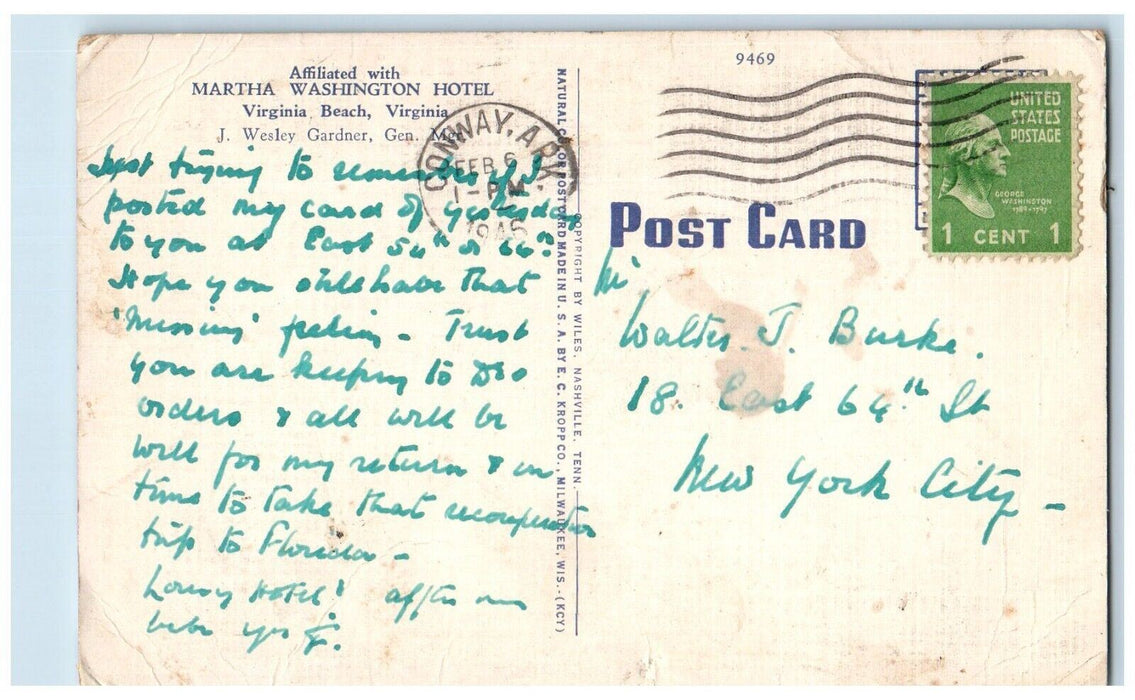 Affiliated with
MARTHA WASHINGTON HOTEL
Virginia Beach, Virginia
J. Wesley Gardner, Gen. Mgr.
Just trying to remember if I
posted my card of yesterday
to you at East 54th or 64th?
Hope you still have that
'missing' – Trust
you are keeping to Drs
orders & all will be
well for my return & in
time to take that recuperation
trip to Florida –
Lousy Hotel!
NATURAL COLOR POST CARD MADE IN U. S. A. BY E. C. KROPP CO., MILWAUKEE, WIS.-(KCY)
COPYRIGHT BY WILES, NASHVILLE, TENN.
9469
CONWAY, ARK.
FEB 6
1 - PM
1946
UNITED
STATES
POSTAGE
GEORGE
WASHINGTON
1789-1797
1 CENT 1
POST CARD
Mr
Walter J. Burke.
18. East 64th St
New York City –